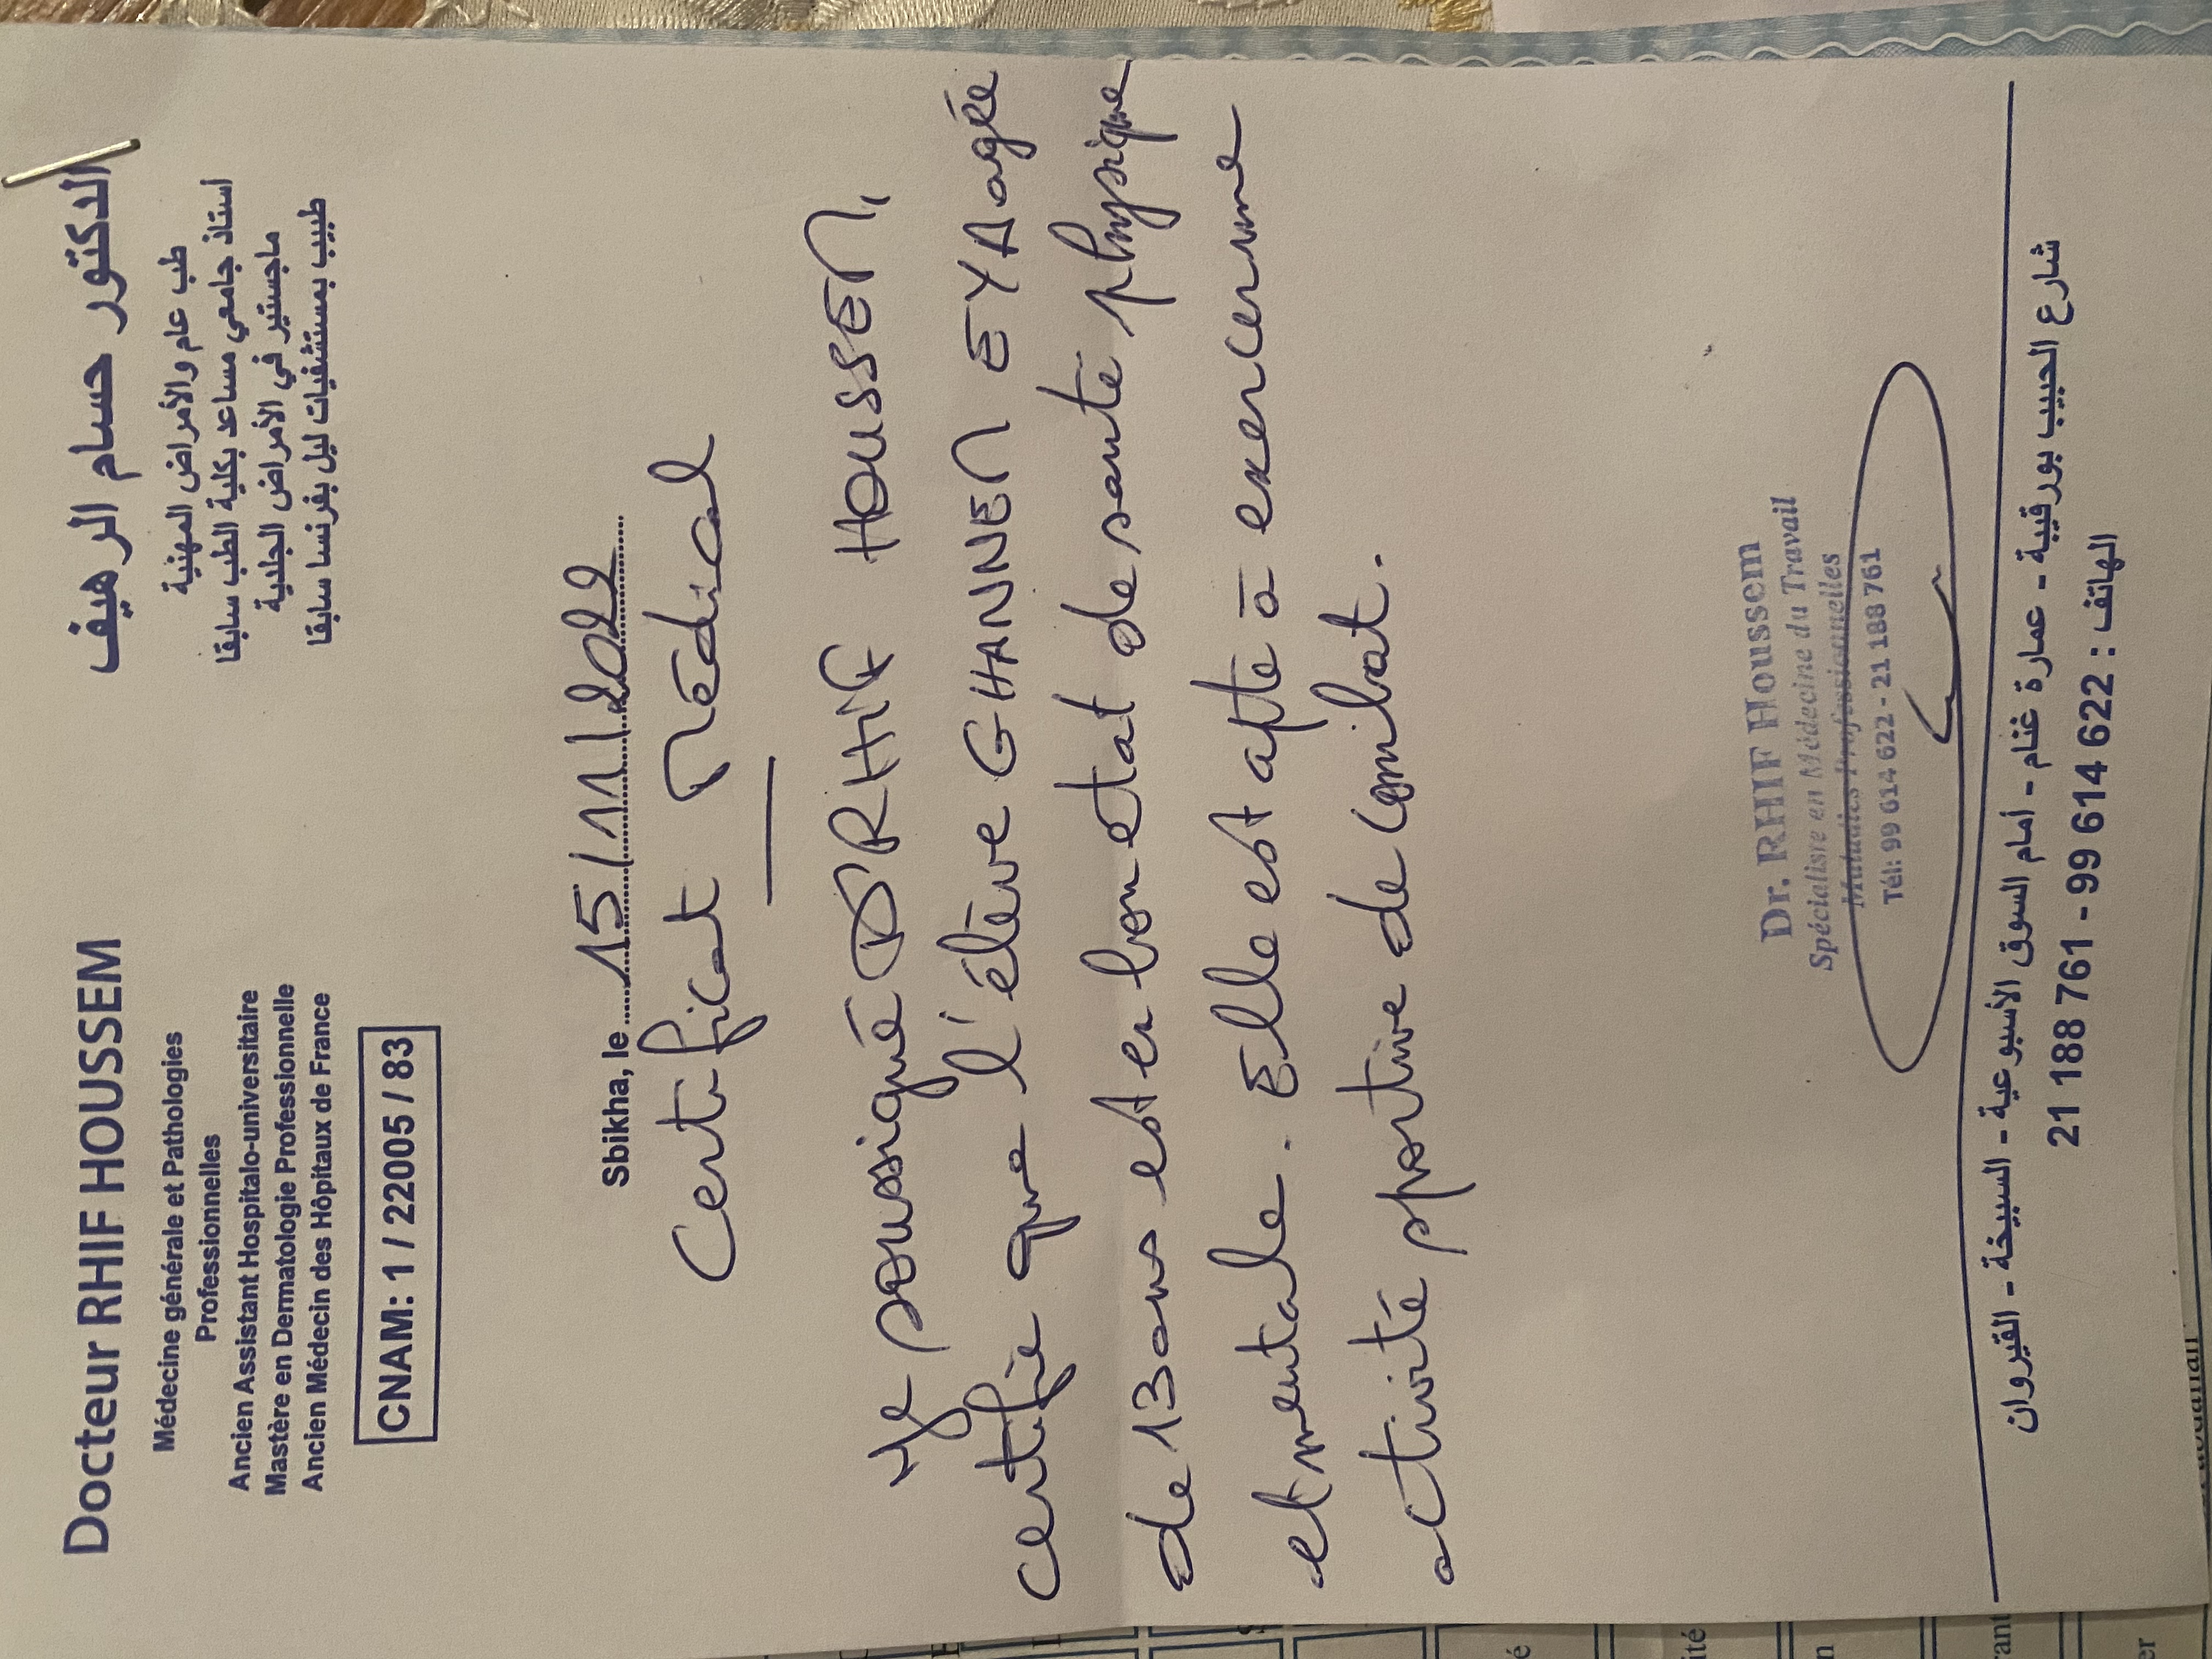 Docteur RHIF HOUSSEM
Médecine générale et Pathologies
Professionnelles
Ancien Assistant Hospitalo-universitaire
Mastère en Dermatologie Professionnelle
Ancien Médecin des Hôpitaux de France
CNAM: 1 / 22005 / 83
الدكتور حسام الرهيف
طب عام والأمراض المهنية
أستاذ جامعي مساعد بكلية الطب سابقا
ماجستير في الأمراض الجلدية
طبيب بمستشفيات ليل بفرنسا سابقا
Sbikha, le 15/11/2022
Certificat Médical
Je soussigné Dr RHIF HOUSSEM,
certifie que l'élève GHANNEM EYA agée
de 13 ans est en bon etat de santé physique
et mentale. Elle est apte à exercer une
activité sportive de combat.
Dr. RHIF Houssem
Spécialiste en Médecine du Travail
Maladies Professionnelles
Tél: 99 614 622 - 21 188 761
شارع الحبيب بورقيبة - عمارة غنام - أمام السوق الأسبوعية - السبيخة - القيروان
الهاتف : 21 188 761 - 99 614 622